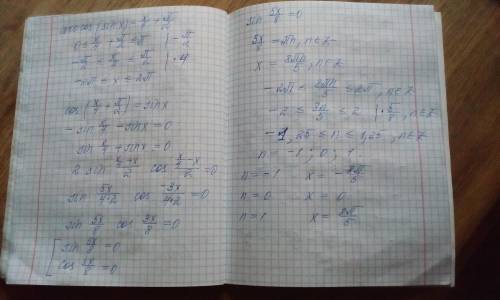 arccos (sin x) = x/4 + π/2
0 ≤ x/4 + π/2 ≤ π | - π/2
- π/2 ≤ x/4 ≤ π/2 | · 4
- 2π ≤ x ≤ 2π
cos (x/4 + π/2) = sin x
- sin x/4 - sin x = 0
sin x/4 + sin x = 0
2 sin (x/4 + x)/2 cos (x/4 - x)/2 = 0
sin 5x/4·2 cos -3x/4·2 = 0
sin 5x/8 cos 3x/8 = 0
[ sin 5x/8 = 0
cos 3x/8 = 0
sin 5x/8 = 0
5x/8 = πn, n∈Z
x = 8πn/5, n∈Z
- 2π ≤ 8πn/5 ≤ 2π, n∈Z
- 2 ≤ 8n/5 ≤ 2 | · 5/8, n∈Z
- 1,25 ≤ n ≤ 1,25, n∈Z
n = -1; 0; 1
n = -1 x = - 8π/5
n = 0 x = 0
n = 1 x = 8π/5